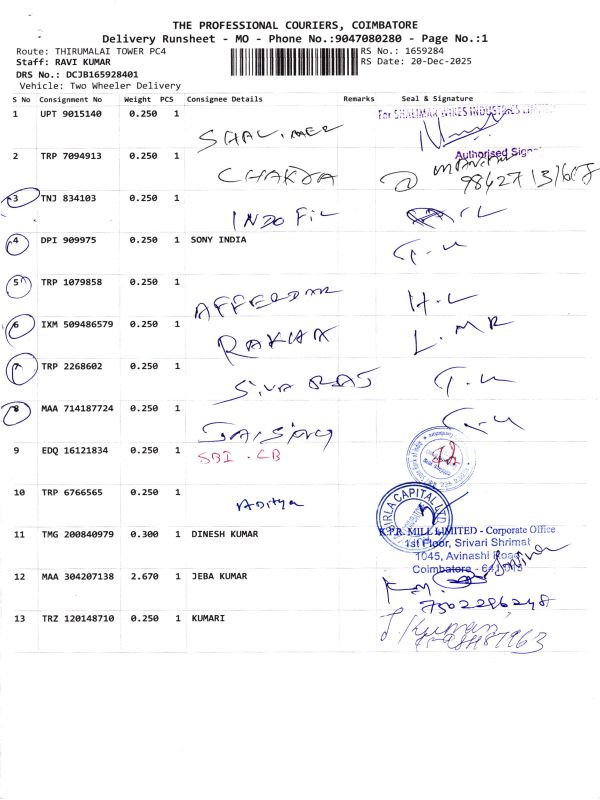 THE PROFESSIONAL COURIERS, COIMBATORE
Delivery Runsheet - MO - Phone No.:9047080280 - Page No.:1
Route: THIRUMALAI TOWER PC4 RS No.: 1659284
Staff: RAVI KUMAR RS Date: 20-Dec-2025
DRS No.: DCJB165928401
Vehicle: Two Wheeler Delivery
S No Consignment No Weight PCS Consignee Details Remarks Seal & Signature
1 UPT 9015140 0.250 1 For SHALIMAR WIRES INDUSTRIES LIMITED
SHALIMER
Authorised Sign
2 TRP 7094913 0.250 1
CHAKRA
3 TNJ 834103 0.250 1
INDO FIL
4 DPI 909975 0.250 1 SONY INDIA
5 TRP 1079858 0.250 1
H.L
6 IXM 509486579 0.250 1
L.MR
7 TRP 2268602 0.250 1
SIVA RAJ
8 MAA 714187724 0.250 1
JAISING
9 EDQ 16121834 0.250 1
SBI . CB
10 TRP 6766565 0.250 1
Aditya
BIRLA CAPITAL LTD
11 TMG 200840979 0.300 1 DINESH KUMAR K.P.R. MILL LIMITED - Corporate Office
1st Floor, Srivari Shrimat
1045, Avinashi Road
Coimbatore - 641 018
12 MAA 304207138 2.670 1 JEBA KUMAR
7502286248
13 TRZ 120148710 0.250 1 KUMARI